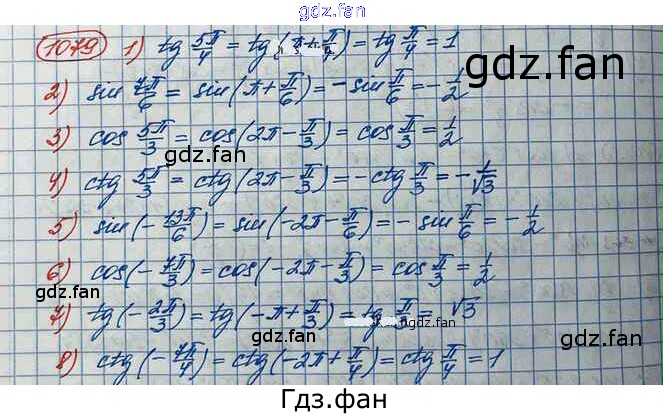 gdz.fan
1079 1) tg 5π/4 = tg(π+π/4) = tg π/4 = 1
gdz.fan
2) sin 7π/6 = sin(π+π/6) = -sin π/6 = -1/2
3) cos 5π/3 = cos(2π-π/3) = cos π/3 = 1/2
gdz.fan
gdz.fan
4) ctg 5π/3 = ctg(2π-π/3) = -ctg π/3 = -1/√3
5) sin(-13π/6) = sin(-2π-π/6) = -sin π/6 = -1/2
gdz.fan
6) cos(-7π/3) = cos(-2π-π/3) = cos π/3 = 1/2
gdz.fan
7) tg(-2π/3) = tg(-π+π/3) = tg π/3 = √3
gdz.fan
gdz.fan
8) ctg(-7π/4) = ctg(-2π+π/4) = ctg π/4 = 1
Гдз.фан